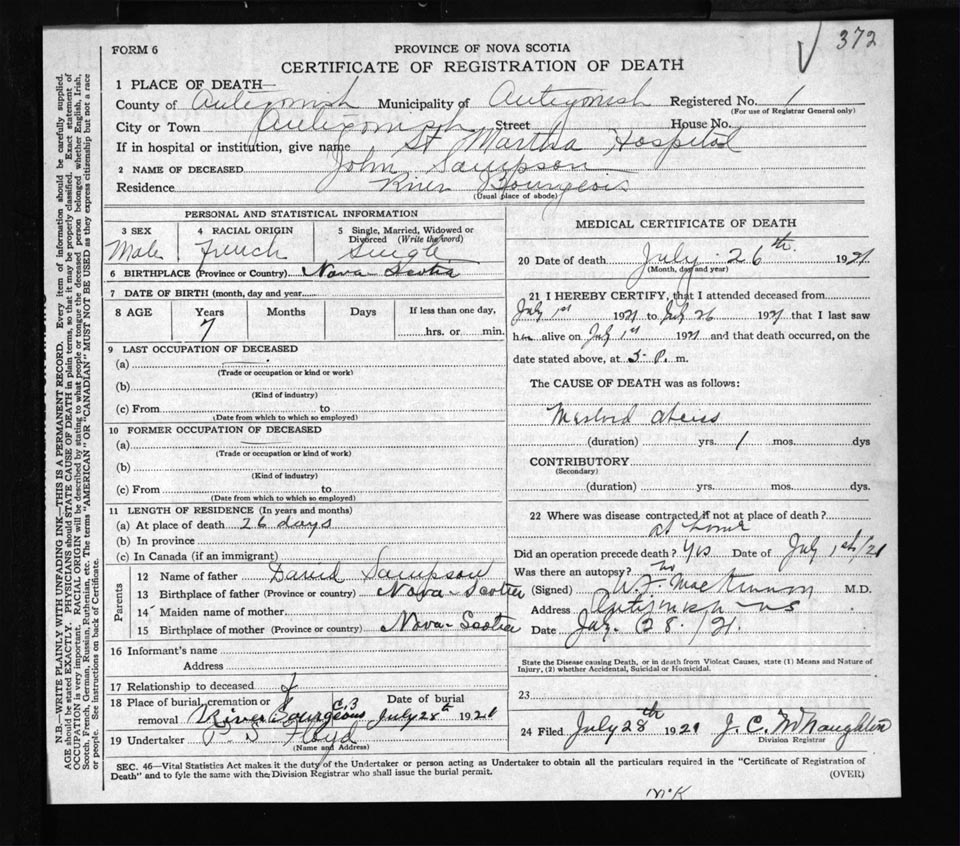 372
FORM 6
PROVINCE OF NOVA SCOTIA
CERTIFICATE OF REGISTRATION OF DEATH
1 PLACE OF DEATH—
County of Antigonish Municipality of Antigonish Registered No. 1
(For use of Registrar General only)
City or Town Antigonish Street House No.
If in hospital or institution, give name St Martha Hospital
2 NAME OF DECEASED John Sampson
Residence River Bourgeois
(Usual place of abode)
PERSONAL AND STATISTICAL INFORMATION
3 SEX 4 RACIAL ORIGIN 5 Single, Married, Widowed or
Divorced (Write the word)
Male French Single
6 BIRTHPLACE (Province or Country) Nova Scotia
7 DATE OF BIRTH (month, day and year
8 AGE Years Months Days If less than one day,
7 hrs. or min.
9 LAST OCCUPATION OF DECEASED
(a)
(Trade or occupation or kind or work)
(b)
(Kind of industry)
(c) From to
(Date from which to which so employed)
10 FORMER OCCUPATION OF DECEASED
(a)
(Trade or occupation or kind or work)
(b)
(Kind of industry)
(c) From to
(Date from which to which so employed)
11 LENGTH OF RESIDENCE (In years and months)
(a) At place of death 26 days
(b) In province
(c) In Canada (if an immigrant)
Parents
12 Name of father David Sampson
13 Birthplace of father (Province or country) Nova-Scotia
14 Maiden name of mother
15 Birthplace of mother (Province or country) Nova-Scotia
16 Informant's name
Address
17 Relationship to deceased
18 Place of burial, cremation or Date of burial
removal River Bourgeois C.B July 28th 1921
19 Undertaker Floyd
(Name and Address)
MEDICAL CERTIFICATE OF DEATH
20 Date of death July 26th 1921
(Month, day and year)
21 I HEREBY CERTIFY, that I attended deceased from
July 1st 1921 to July 26 1921 that I last saw
him alive on July 1st 1921 and that death occurred, on the
date stated above, at 5 P. m.
The CAUSE OF DEATH was as follows:
Mastoid abcess
(duration) yrs. 1 mos. dys
CONTRIBUTORY
(Secondary)
(duration) yrs. mos. dys.
22 Where was disease contracted if not at place of death?
at home
Did an operation precede death? Yes Date of July 1st/21
Was there an autopsy? no
(Signed) W. F. MacKinnon M.D.
Address Antigonish - NS
Date July 28./21.
State the Disease causing Death, or in death from Violent Causes, state (1) Means and Nature of
Injury, (2) whether Accidental, Suicidal or Homicidal.
23
24 Filed July 28th 1921 J. C. McNaughton
Division Registrar
SEC. 46—Vital Statistics Act makes it the duty of the Undertaker or person acting as Undertaker to obtain all the particulars required in the "Certificate of Registration of
Death" and to fyle the same with the Division Registrar who shall issue the burial permit. (OVER)
N.B.—WRITE PLAINLY WITH UNFADING INK—THIS IS A PERMANENT RECORD. Every item of information should be carefully supplied.
AGE should be stated EXACTLY. PHYSICIANS should STATE CAUSE OF DEATH in plain terms, so that it may be properly classified. Exact statement of
OCCUPATION is very important. RACIAL ORIGIN will be described by stating to what people or tongue the deceased person belonged whether English, Irish,
Scotch, French, German, Russian, Ruthenian, etc. The terms "AMERICAN" OR "CANADIAN" MUST NOT BE USED as they express citizenship but not a race
or people. See instructions on back of Certificate.